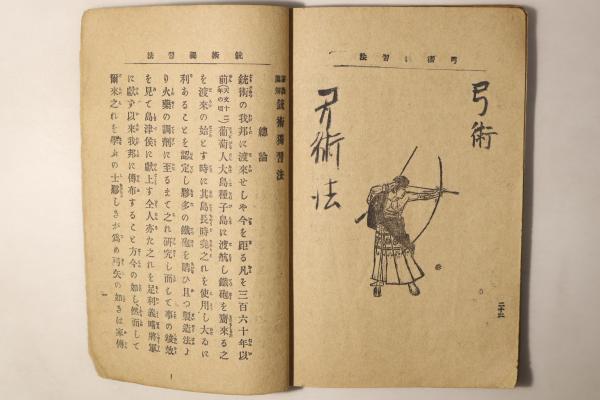 弓術獨習法
弓術
弓術法
銃術獨習法
圖解
銃術獨習法
總論
銃術の我邦に渡來せしや今を距る凡を三百六十年以
前(天文十二年の頃)葡萄人大島種子島に渡航し鐵砲を齎來る之
を渡來の始とす時に其島長時堯之れを使用し大ゐに
利あることを認定し夥多の鐵砲を購ひ且つ製造法よ
り火藥の調劑に至るまて之れ研究し而して事の竣效
を見て島津侯に献上す仝人亦た之れを足利義晴將軍
に献す以來我邦に傳布すること方今の如し然而して
爾來之れを學ふの士夥しきが爲め弓矢の如きは家傳
一